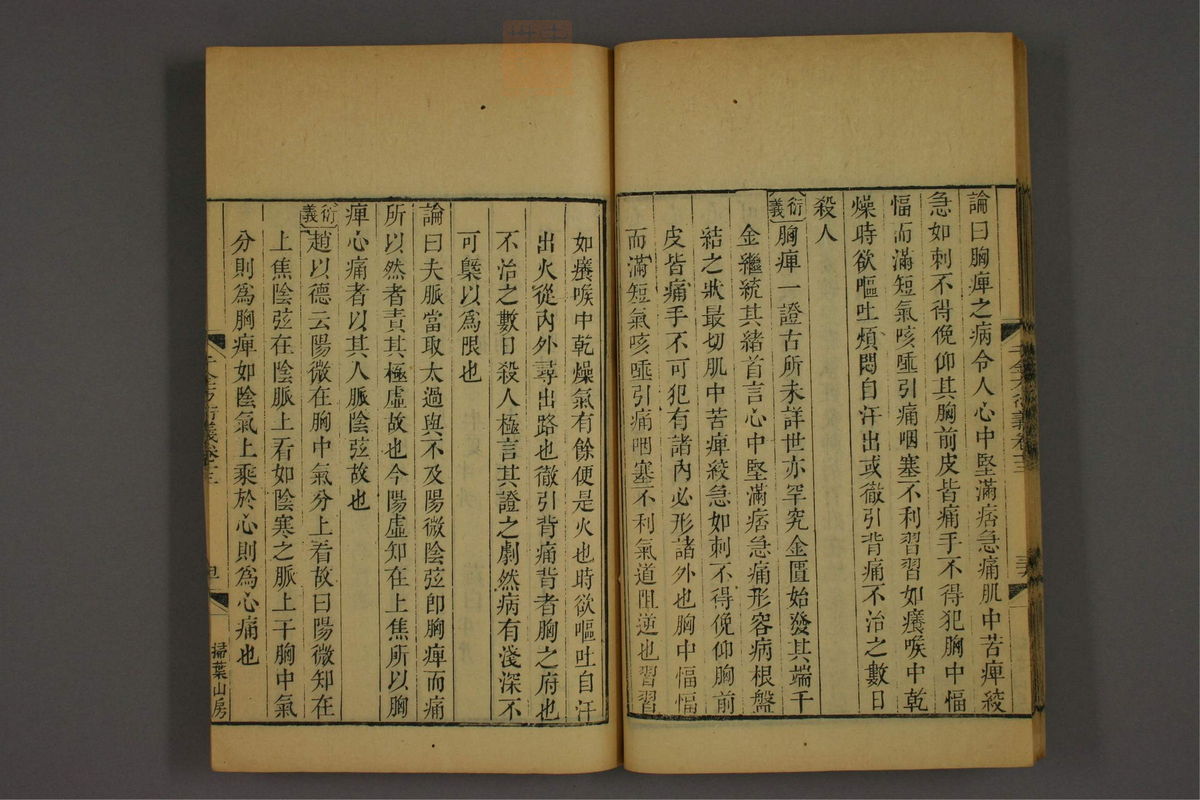 論曰胸痺之病令人心中堅滿痞急痛肌中苦痺絞
急如刺不得俛仰其胸前皮皆痛手不得犯胸中愊
愊而滿短氣咳唾引痛咽塞不利習習如癢喉中乾
燥時欲嘔吐煩悶自汗出或徹引背痛不治之數日
殺人
衍義胸痺一證古所未詳世亦罕究金匱始發其端千
金繼統其緒首言心中堅滿痞急痛形容病根盤
結之狀最切肌中苦痺絞急如刺不得俛仰胸前
皮皆痛手不可犯有諸內必形諸外也胸中愊愊
而滿短氣咳唾引痛咽塞不利氣道阻逆也習習
如癢喉中乾燥氣有餘便是火也時欲嘔吐自汗
出火從內外尋出路也徹引背痛背者胸之府也
不治之數日殺人極言其證之劇然病有淺深不
可槩以為限也
論曰夫脈當取太過與不及陽微陰弦即胸痺而痛
所以然者責其極虛故也今陽虛知在上焦所以胸
痺心痛者以其人脈陰弦故也
衍義趙以德云陽微在胸中氣分上看故曰陽微知在
上焦陰弦在陰脈上看如陰寒之脈上干胸中氣
分則爲胸痺如陰氣上乘於心則爲心痛也
千金方衍義卷十三
掃葉山房